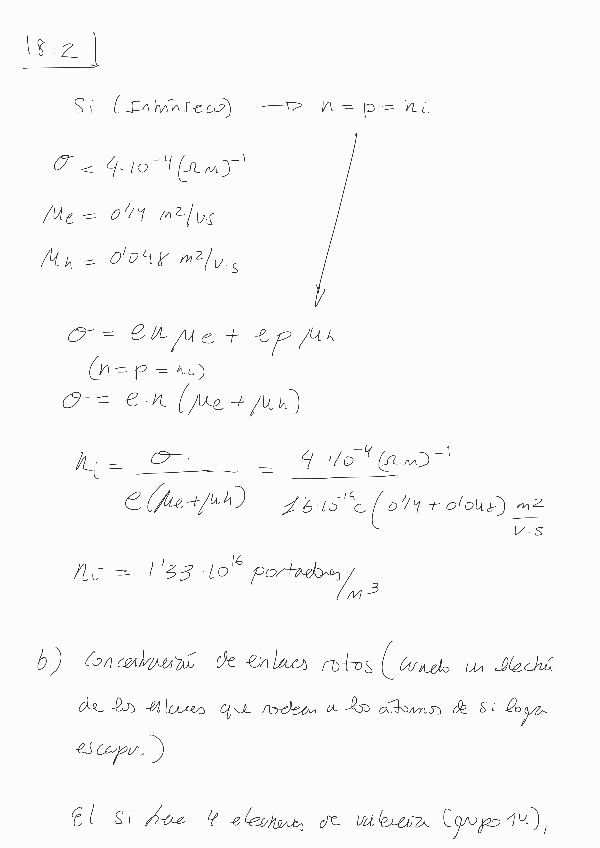 18.2
Si (Intrínseco) → n = p = ni
σ = 4·10⁻⁴ (Ωm)⁻¹
μe = 0'14 m²/v.s
μh = 0'048 m²/v.s
σ = e n μe + e p μh
(n = p = ni)
σ = e·n (μe + μh)
ni = σ / e(μe+μh) = 4·10⁻⁴ (Ωm)⁻¹ / 1'6·10⁻¹⁹c (0'14 + 0'048) m²/v.s
ni = 1'33·10¹⁶ portadores/m³
b) Concentración de enlaces rotos (cuando un electrón
de los enlaces que rodean a los átomos de Si logra
escapar.)
El Si tiene 4 electrones de valencia (grupo IV),